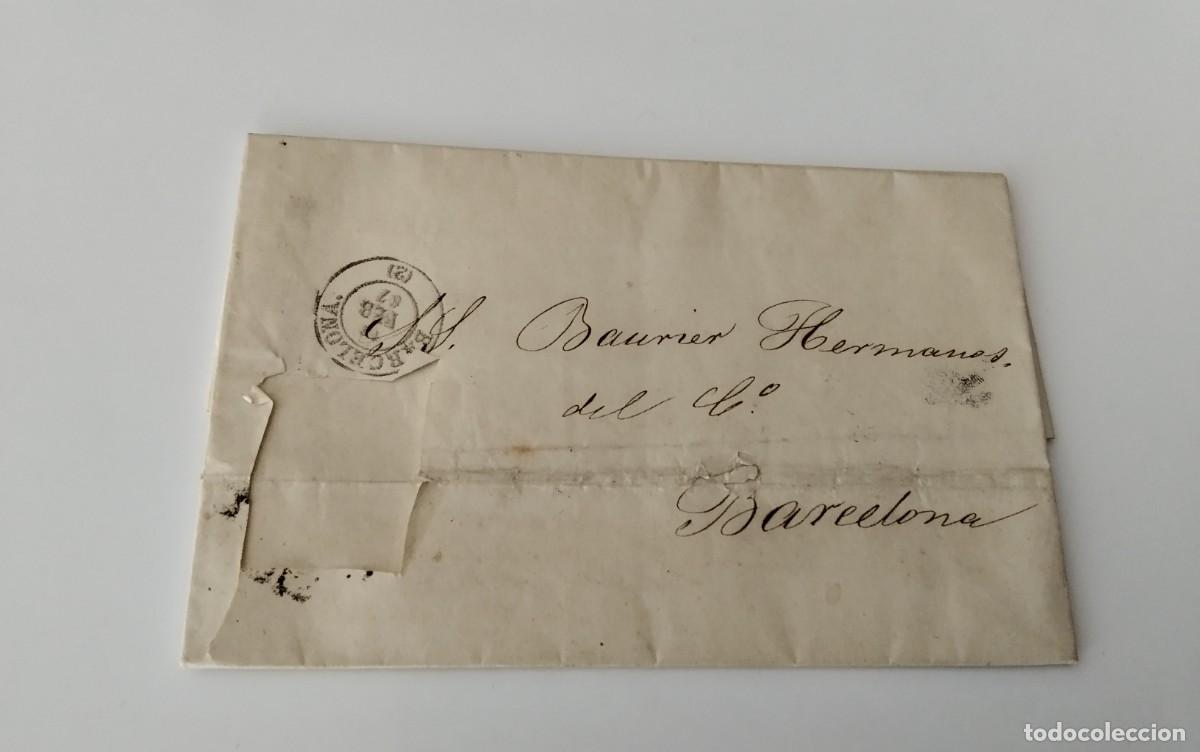 BARCELONA.
FEB
67
(2)
S.S. Baurier Hermanos.
del C.º
Barcelona
todocoleccion